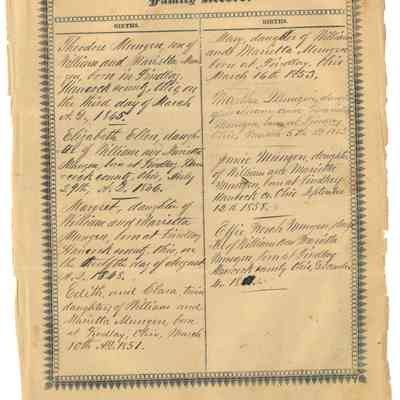 Family Record.
BIRTHS.
Theodore Mungen, son of
William and Marietta Mun-
gen, born in Findlay,
Hancock county, Ohio, on
the third day of March
A.D. 1845.
Elizabeth Ellen, daugh-
ter of William and Marietta
Mungen, born at Findlay, Han-
cock county, Ohio, July
29th, A.D. 1846.
Margret, daughter of
William and Marietta
Mungen, born at Findlay
Hancock county, Ohio, on
the day of August
A.D. 1848.
Edith, and Clara, twin
daughters of William and
Marietta Mungen, born
at Findlay, Ohio, March
10th AD. 1851.
BIRTHS.
Mary, daughter of William
and Marietta Mungen
born at Findlay, Ohio
March 16th 1853.
Martha Mungen, daugh
of William and
Mungen, born at Findlay
Ohio, March 5th
Janie Mungen, daughter
of William and Marietta
Mungen, born at Findlay
Hancock co. Ohio September
12th 1858.
Effie Mungen, daugh
ter of William and Marietta
Mungen, born at Findlay
Hancock county Ohio, December